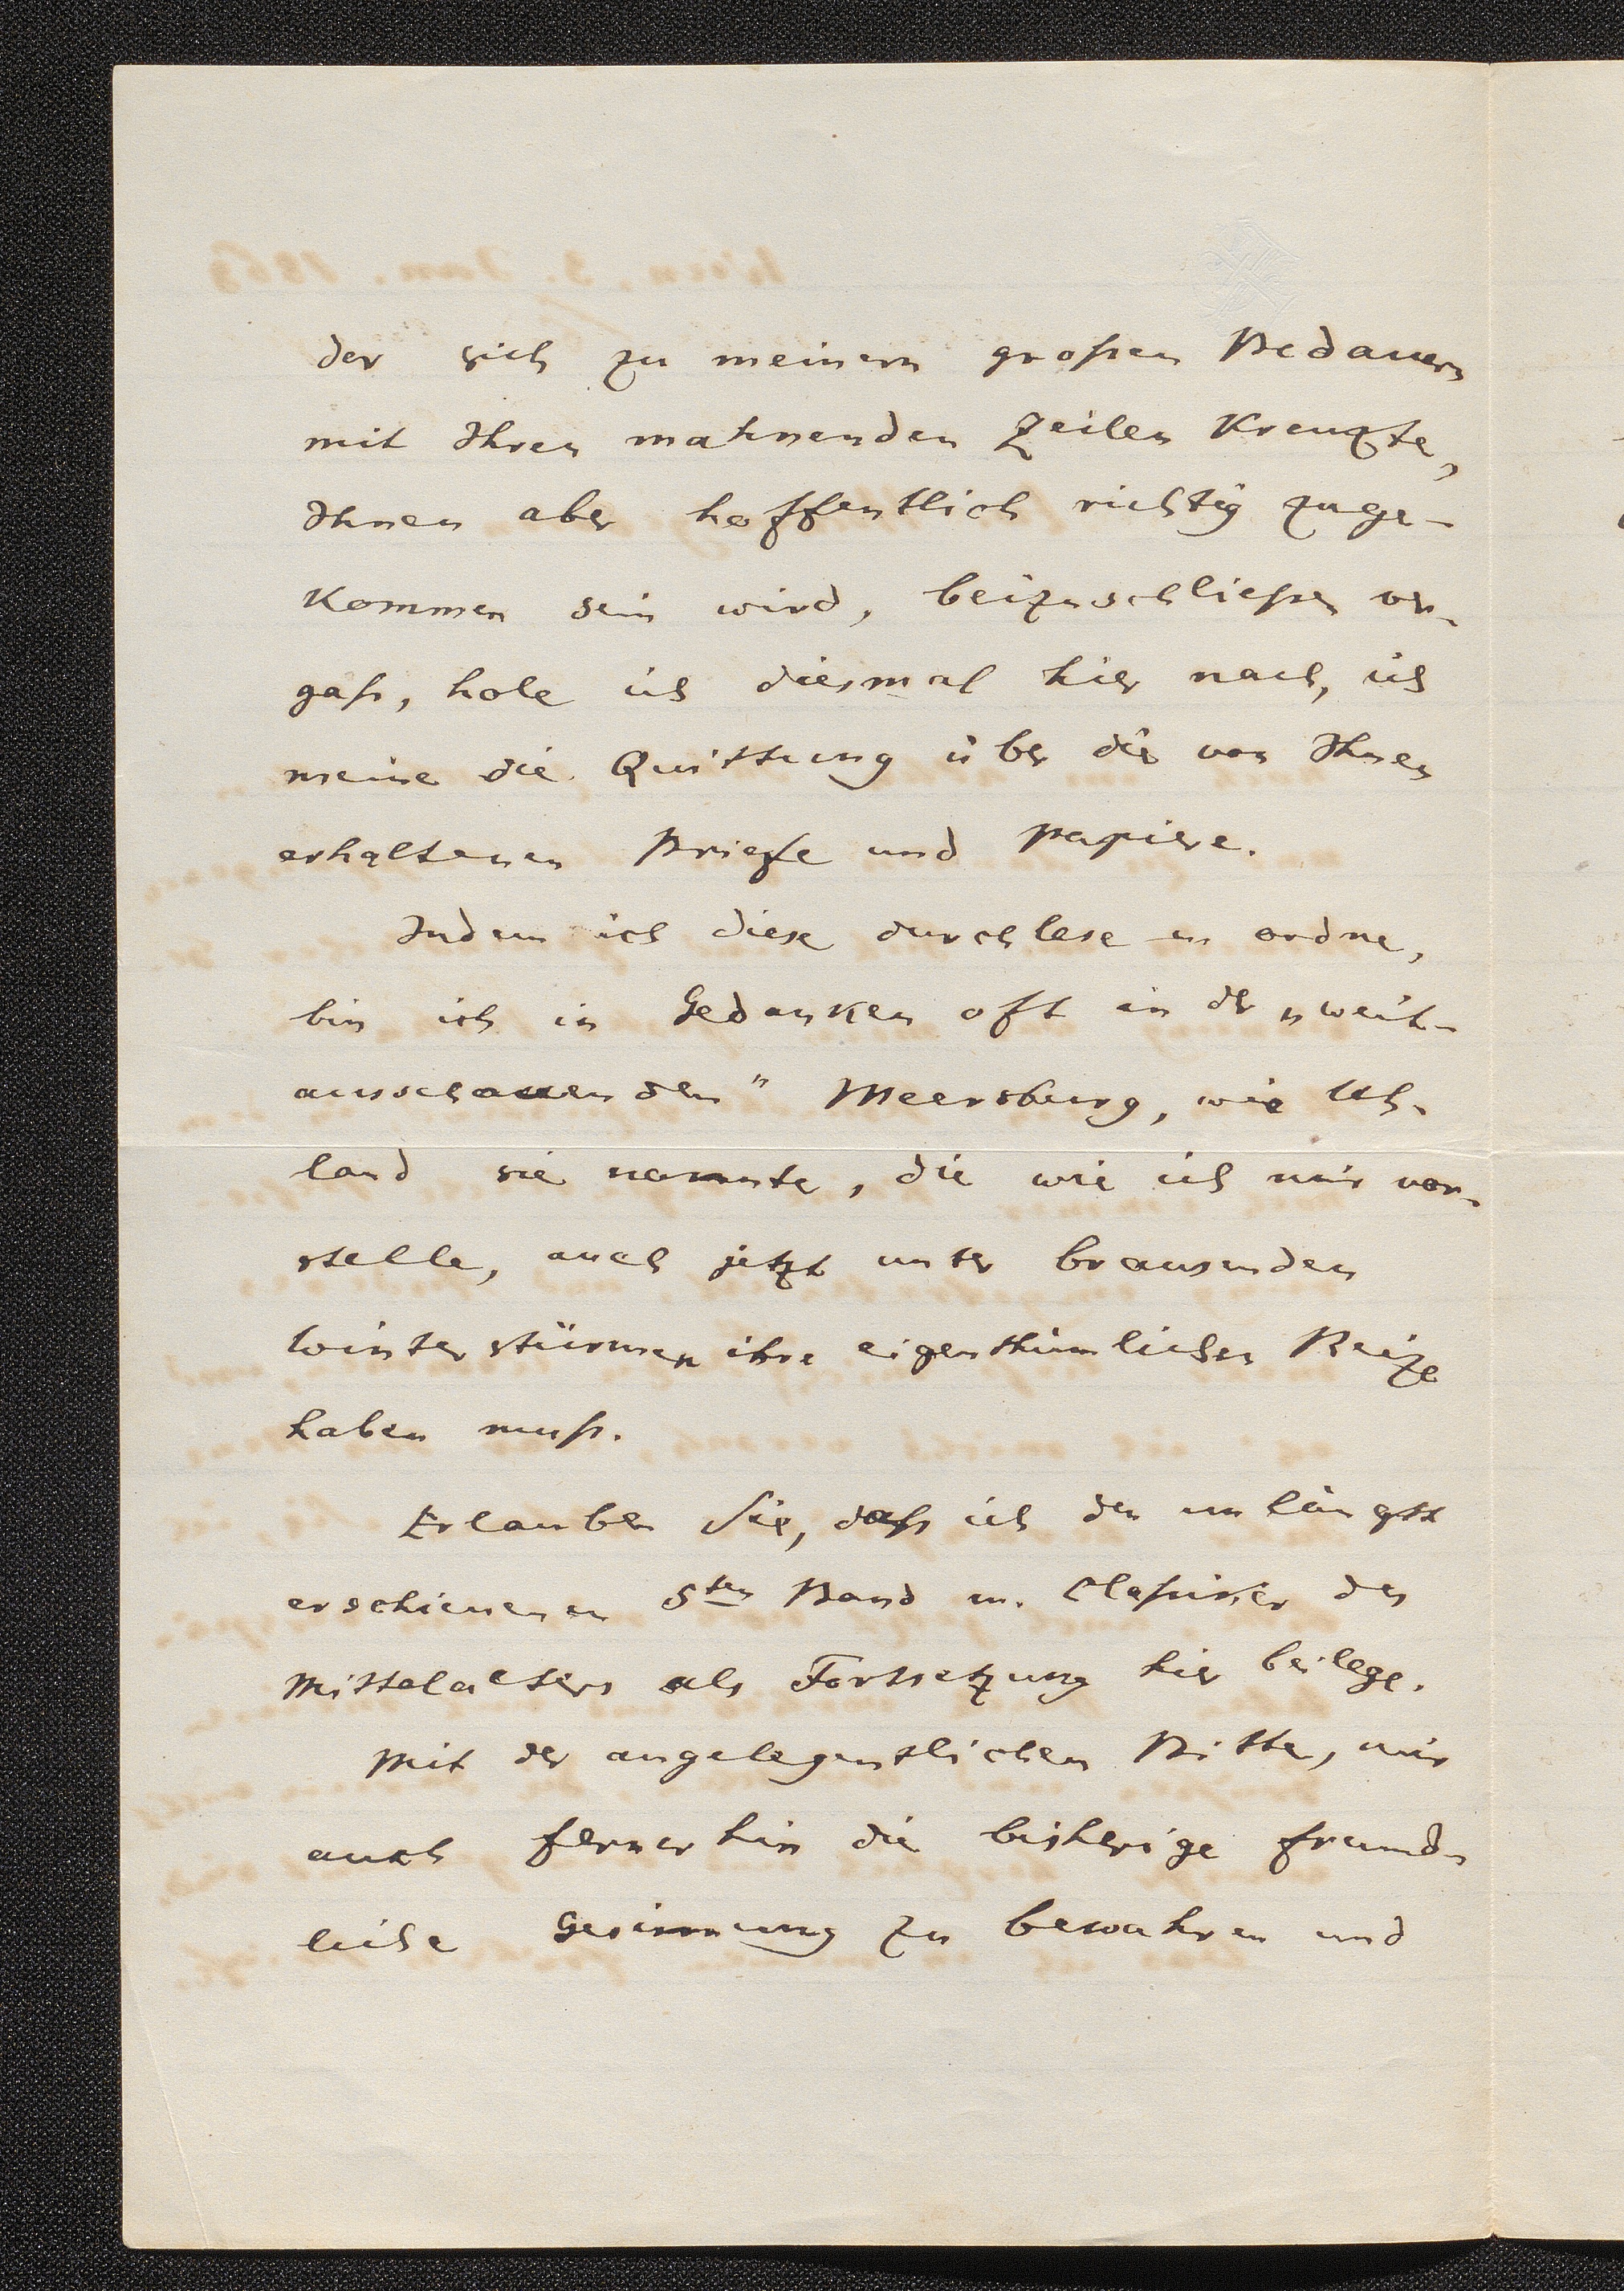 der sich zu meinem großen Bedauern
mit Ihren mahnenden Zeilen kreuzte,
Ihnen aber hoffentlich richtig zuge-
kommen sein wird, beizuschließen ver-
gaß, hole ich diesmal hier nach, ich
meine die Quittung über die von Ihnen
erhaltenen Briefe und Papiere.
Indem ich diese durchlese u ordne,
bin ich in Gedanken oft in der „weit-
ausschauenden" Meersburg, wie Uh-
land sie nannte, die wie ich mir vor-
stelle, auch jetzt unter brausenden
Winterstürmen ihre eigenthümlichen Reize
haben muß.
Erlauben Sie, daß ich den unlängst
erschienenen 5ten Band m. Classiker des
Mittelalters als Fortsetzung hier beilege.
Mit der angelegentlichen Bitte, mir
auch fernerhin die bisherige freund-
liche Gesinnung zu bewahren und